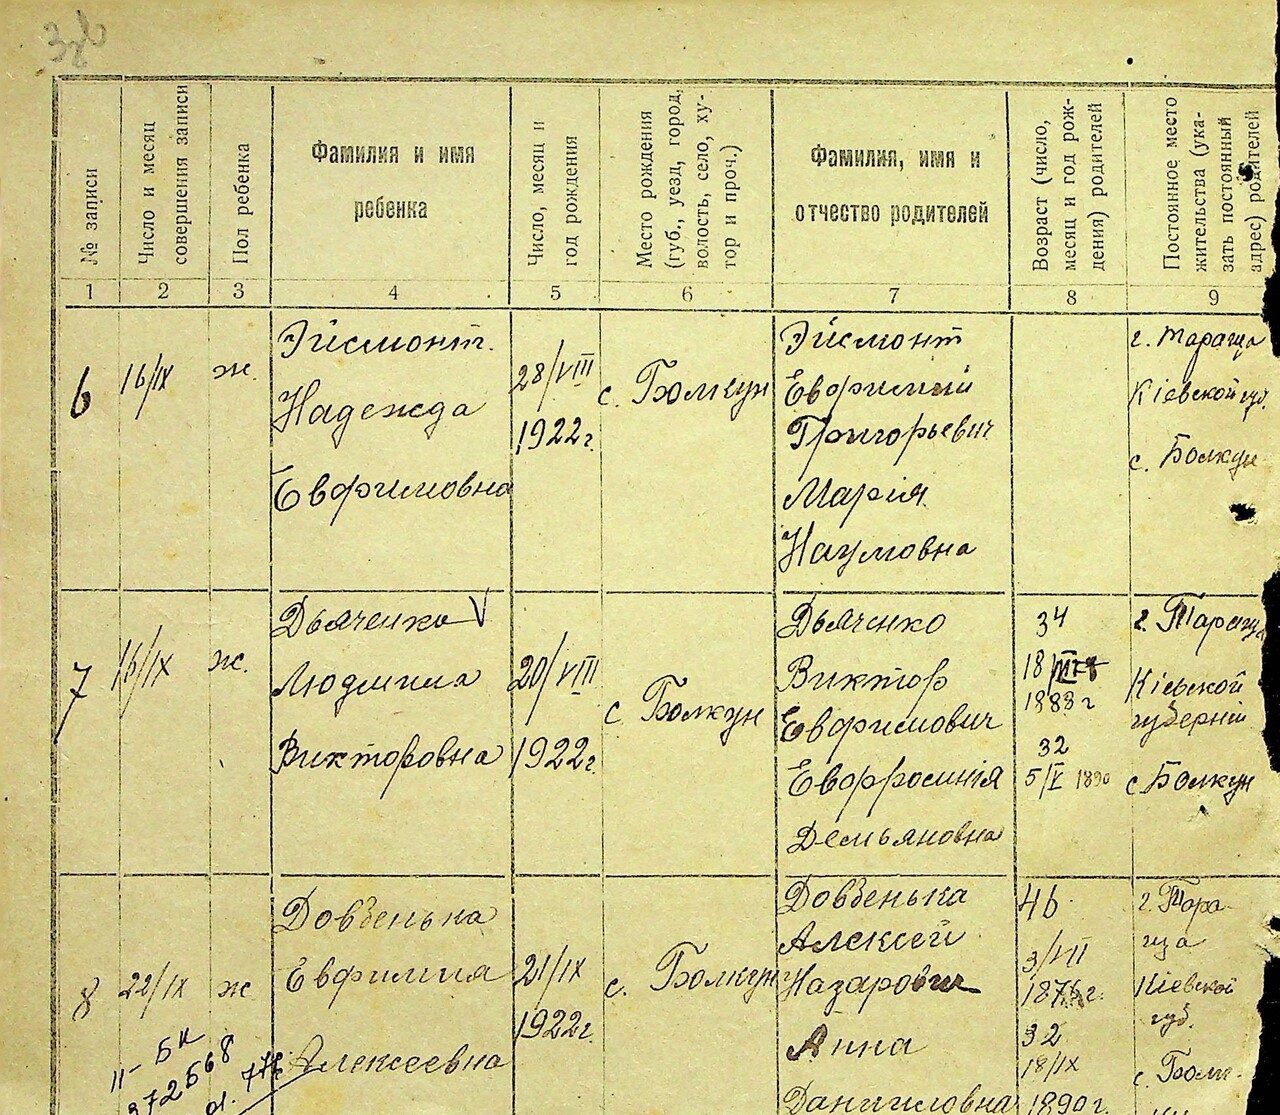 № записи
Число и месяц
совершения записи
Пол ребенка
Фамилия и имя
ребенка
Число, месяц и
год рождения
Место рождения
(губ., уезд, город,
волость, село, ху-
тор и проч.)
Фамилия, имя и
отчество родителей
Возраст (число,
месяц и год рож-
дения) родителей
Постоянное место
жительства (ука-
зать постоянный
адрес) родителей
1 2 3 4 5 6 7 8 9
6
16/IX
ж.
Эйсмонт.
Надежда
Евфимовна
28/VIII
1922г.
с. Болкун
Эйсмонт
Евфимий
Григорьевич
Марія
Наумовна
г. Тараща
Кіевской губ.
с. Болкун
7
16/IX
ж.
Дьяченко V
Людмила
Викторовна
20/VIII
1922г.
с. Болкун
Дьяченко
Виктор
Евфимович
Евфросинія
Демьяновна
34
18/
1888 г
32
5/V 1890
г. Тараща
Кіевской
губерніи
с. Болкун
8
22/IX
ж
Довзенька
Евфимия
Алексеевна
21/IX
1922г.
с. Болкун
Довзенька
Алексей
Назарович
Анна
Даниловна
46
3/VII
32
18/IX
1890г.
г. Тара-
ща
Кіевской
губ.
с. Болк-
11- 5к
372568